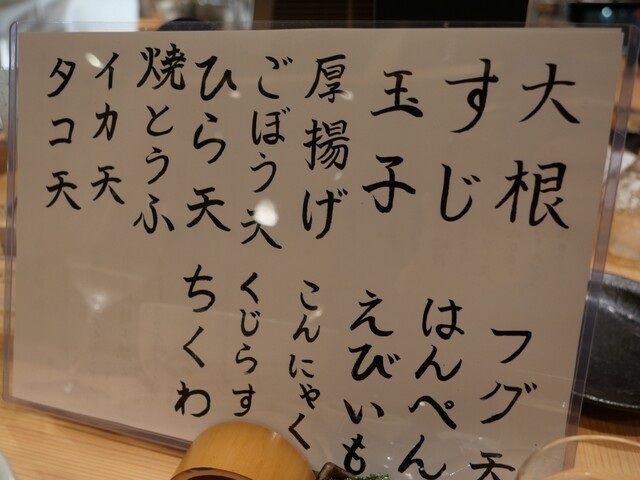 大根
すじ
玉子
厚揚げ
ごぼう天
ひら天
焼とうふ
イカ天
タコ天
フグ天
はんぺん
えびいも
こんにゃく
くじらす
ちくわ